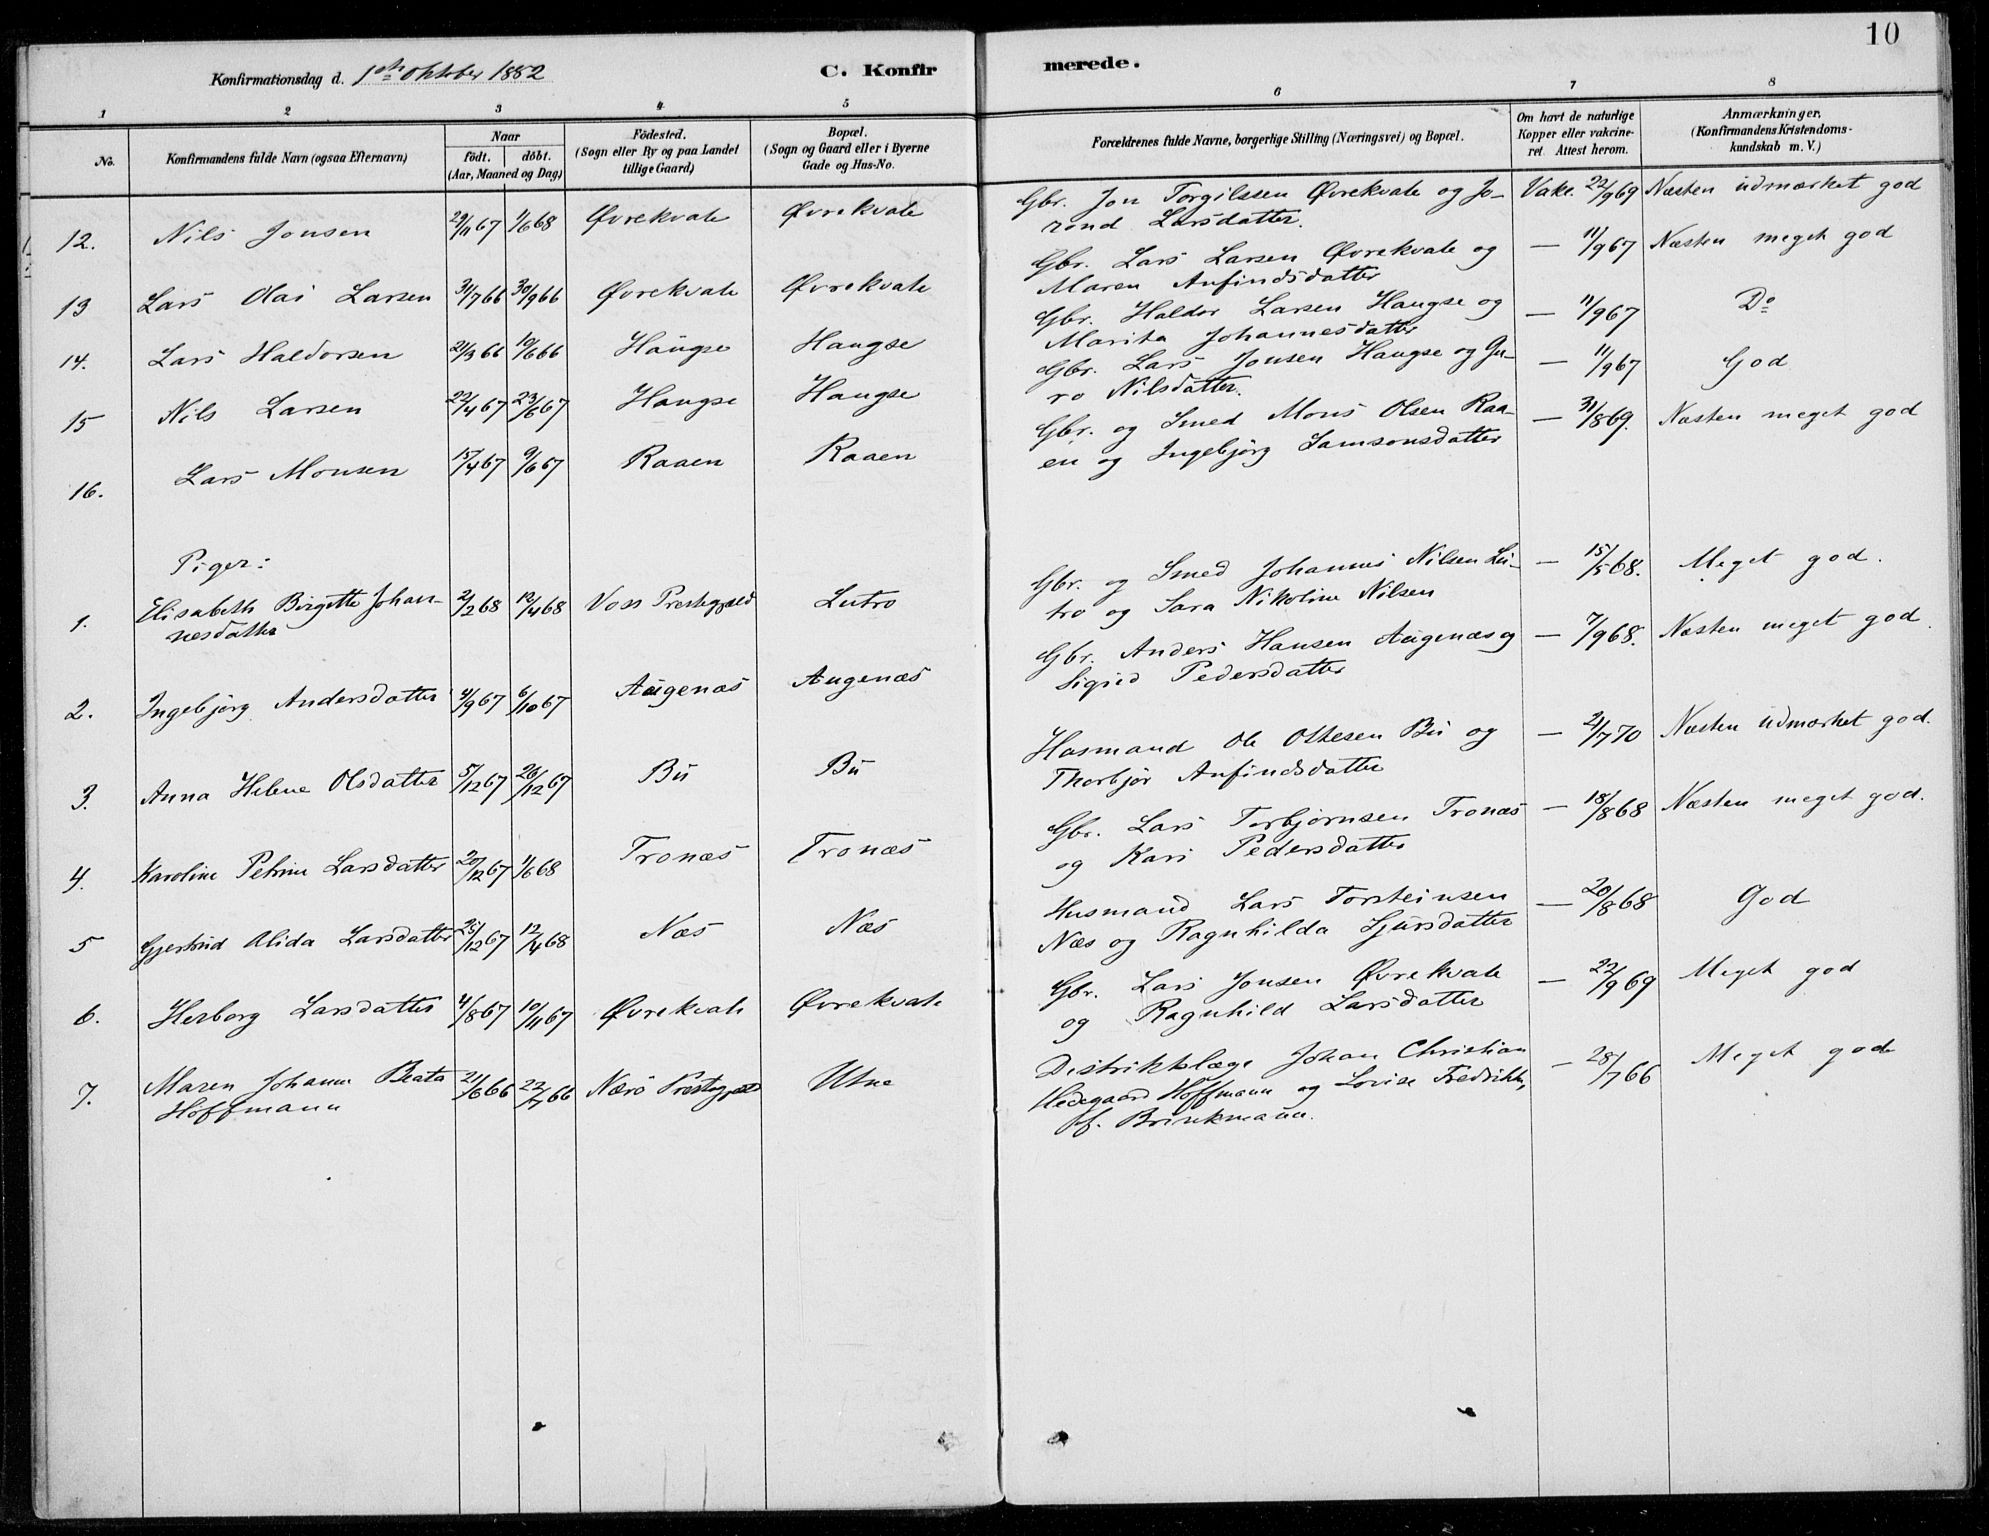 10
Konfirmationsdag d. 1ste Oktober 1882
C. Konfirmerede.
1 2 3 4 5 6 7 8
No.
Konfirmandens fulde Navn (ogsaa Efternavn)
Naar
födt. döbt.
(Aar, Maaned og Dag)
Födested.
(Sogn eller By og paa Landet
tillige Gaard)
Bopæl.
(Sogn og Gaard eller i Byerne
Gade og Hus-No.
Forældrenes fulde Navne, borgerlige Stilling (Næringsvei) og Bopæl.
Om havt de naturlige
Kopper eller vakcine-
ret. Attest herom.
Anmærkninger,
(Konfirmandens Kristendoms-
kundskab m. V.)
12. Nils Jonsen 29/11 67 1/6 68 Øvrekvale Øvrekvale Gbr. Jon Torgilssen Øvrekvale og Jo- Vakc. 22/9 69 Næsten udmærket god
rond Larsdatter.
13 Lars Olai Larsen 31/7 66 30/9 66 Øvrekvale Øvrekvale Gbr. Lars Larsen Øvrekvale og — 11/9 67 Næsten meget god
Maren Anfindsdatter
14. Lars Haldorsen 21/3 66 10/6 66 Haugse Haugse Gbr. Haldor Larsen Haugse og — 11/9 67 Do
Marita Johannesdatter
15 Nils Larsen 22/4 67 23/6 67 Haugse Haugse Gbr. Lars Jonsen Haugse og Gu- — 11/9 67 God
ro Nilsdatter.
16. Lars Monsen 15/4 67 9/6 67 Raaen Raaen Gbr. og Smed Mons Olsen Raa- — 31/8 69. Næsten meget god
en og Ingebjörg Samsonsdatter
Piger:
1. Elisabeth Birgitte Johan- 2/2 68 12/4 68 Voss Prestegjæld Lutro Gbr. og Smed Johannes Nilsen Lu- — 15/5 68. Meget god.
nesdatter
tro og Sara Nikoline Nilsen
2. Ingebjörg Andersdatter 4/9 67 6/10 67 Augenæs Augenæs Gbr. Anders Hansen Augenæs og — 7/9 68. Næsten meget god.
Sigrid Pedersdatter
3. Anna Helene Olsdatter 5/12 67 26/12 67 Bu Bu Husmand Ole Ottesen Bu og — 21/7 70 Næsten udmærket god.
Thorbjör Anfindsdatter
4. Karoline Petrine Larsdatter 20/12 67 1/6 68 Tronæs Tronæs Gbr. Lars Torbjörnsen Tronæs — 18/8 68 Næsten meget god.
og Kari Pedersdatter
5 Gjertrud Alida Larsdatter 25/12 67 12/4 68 Næs Næs Husmand Lars Torsteinsen — 20/8 68 God
Næs og Ragnhilda Sjursdatter
6. Herborg Larsdatter 4/8 67 10/11 67 Øvrekvale Øvrekvale Gbr. Lars Jonsen Øvrekvale — 22/9 69 Meget god
og Ragnhild Larsdatter
7. Maren Johanne Beata 21/6 66 22/7 66 Nærö Prestegjæld Utne Distriktslæge Johan Christian — 28/7 66 Meget god
Hoffmann
Hedegaard Hoffmann og Lovise Fredrikke
f. Brinkmann.